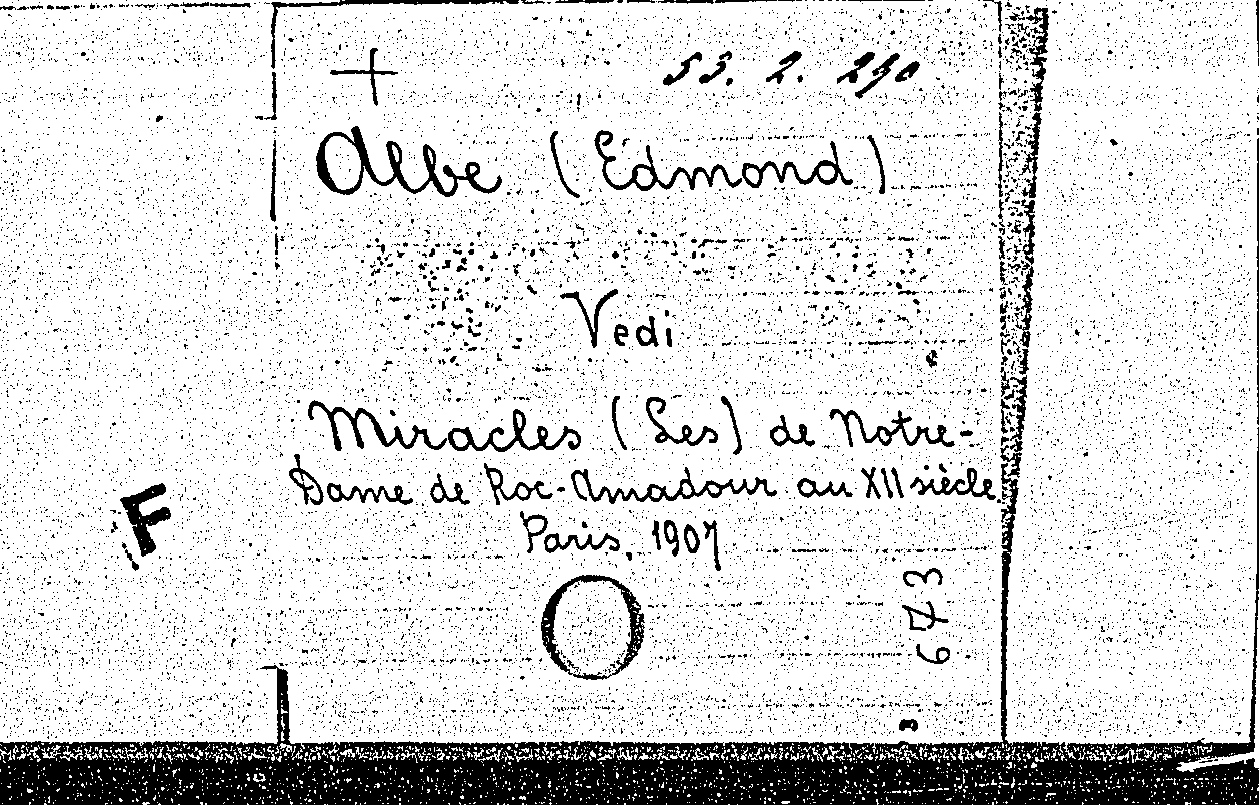 53. 2. 290
Albe (Edmond)
Vedi
Miracles (Les) de Notre-
Dame de Roc-Amadour au XII siècle
Paris, 1907
F
673